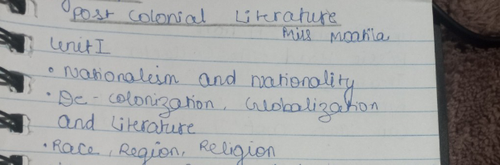 Post Colonial Literature
Miss Moakia
Unit I
• Nationalism and Nationality
• De-colonization, Globalization
and Literature
• Race, Region, Religion